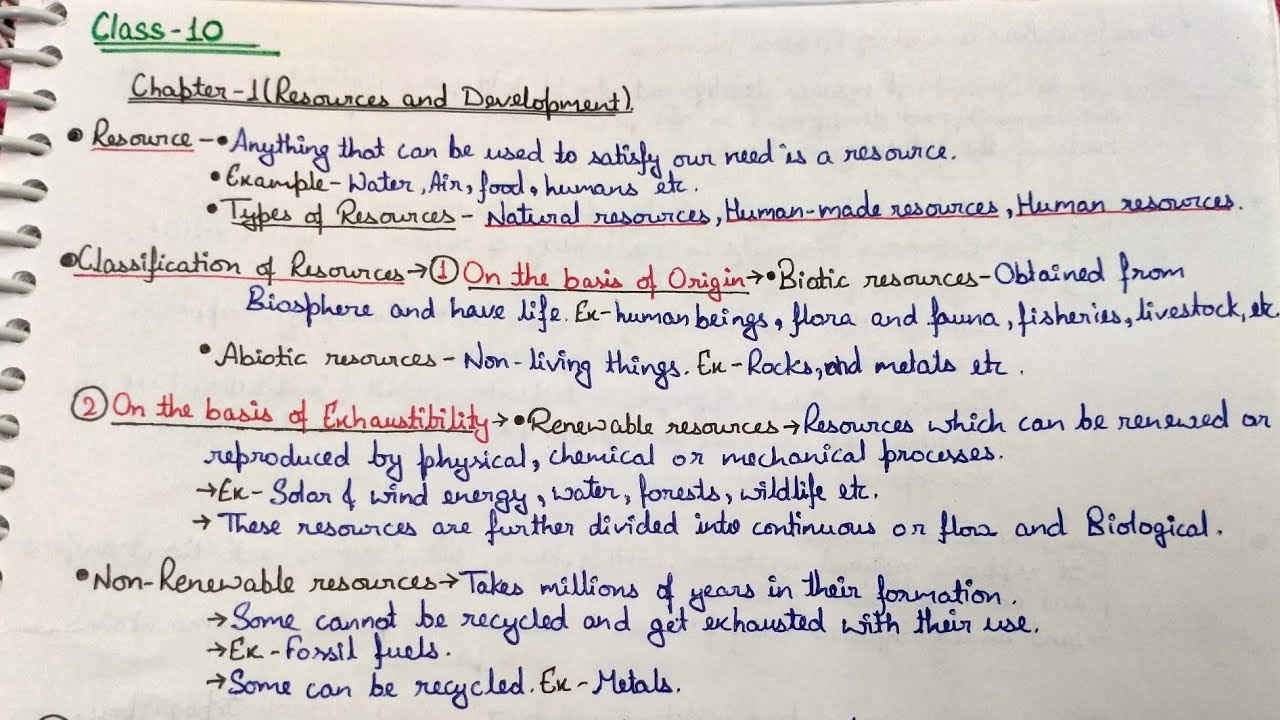 Class-10
Chapter-1 (Resources and Development).
• Resource - • Anything that can be used to satisfy our need is a resource.
• Example - Water, Air, food, humans etc.
• Types of Resources - Natural resources, Human-made resources, Human resources.
• Classification of Resources → ① On the basis of Origin → • Biotic resources - Obtained from
Biosphere and have life. Ex - human beings, flora and fauna, fisheries, livestock, etc
• Abiotic resources - Non-living things. Ex - Rocks, and metals etc.
② On the basis of Exhaustibility → • Renewable resources → Resources which can be renewed or
reproduced by physical, chemical or mechanical processes.
→ Ex - Solar & wind energy, water, forests, wildlife etc.
→ These resources are further divided into continuous or flora and Biological.
• Non-Renewable resources → Takes millions of years in their formation.
→ Some cannot be recycled and get exhausted with their use.
→ Ex - Fossil fuels.
→ Some can be recycled. Ex - Metals.